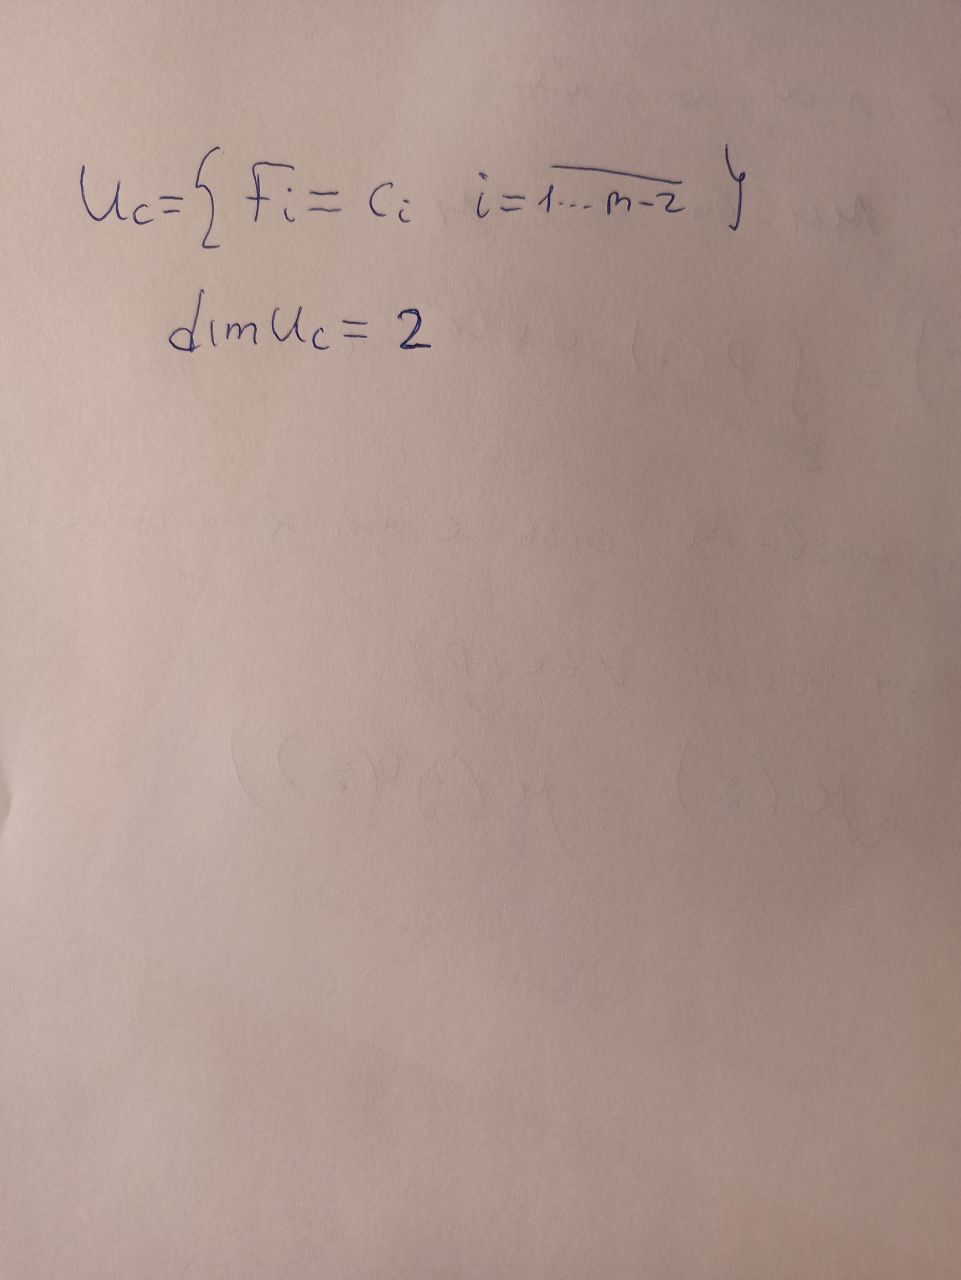 Uc={ Fi = ci i=1...n-2 }
dim Uc = 2